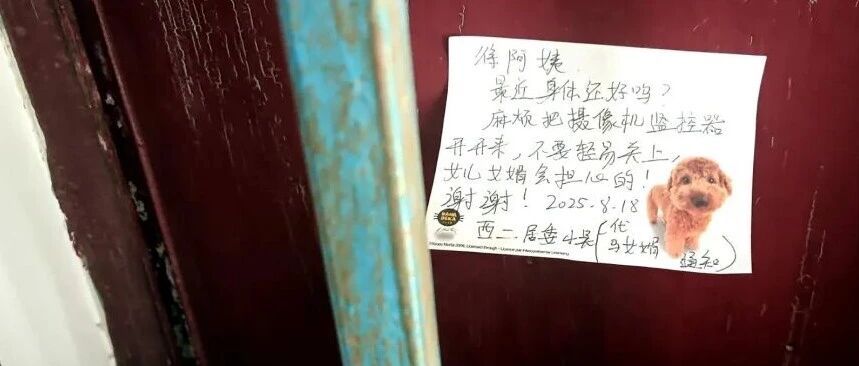 徐阿姨
最近身体还好吗？
麻烦把摄像机监控器
开开来，不要轻易关上，
女儿女婿会担心的！
谢谢！ 2025.8.18
西二居委小吴（代
马女婿
通知）